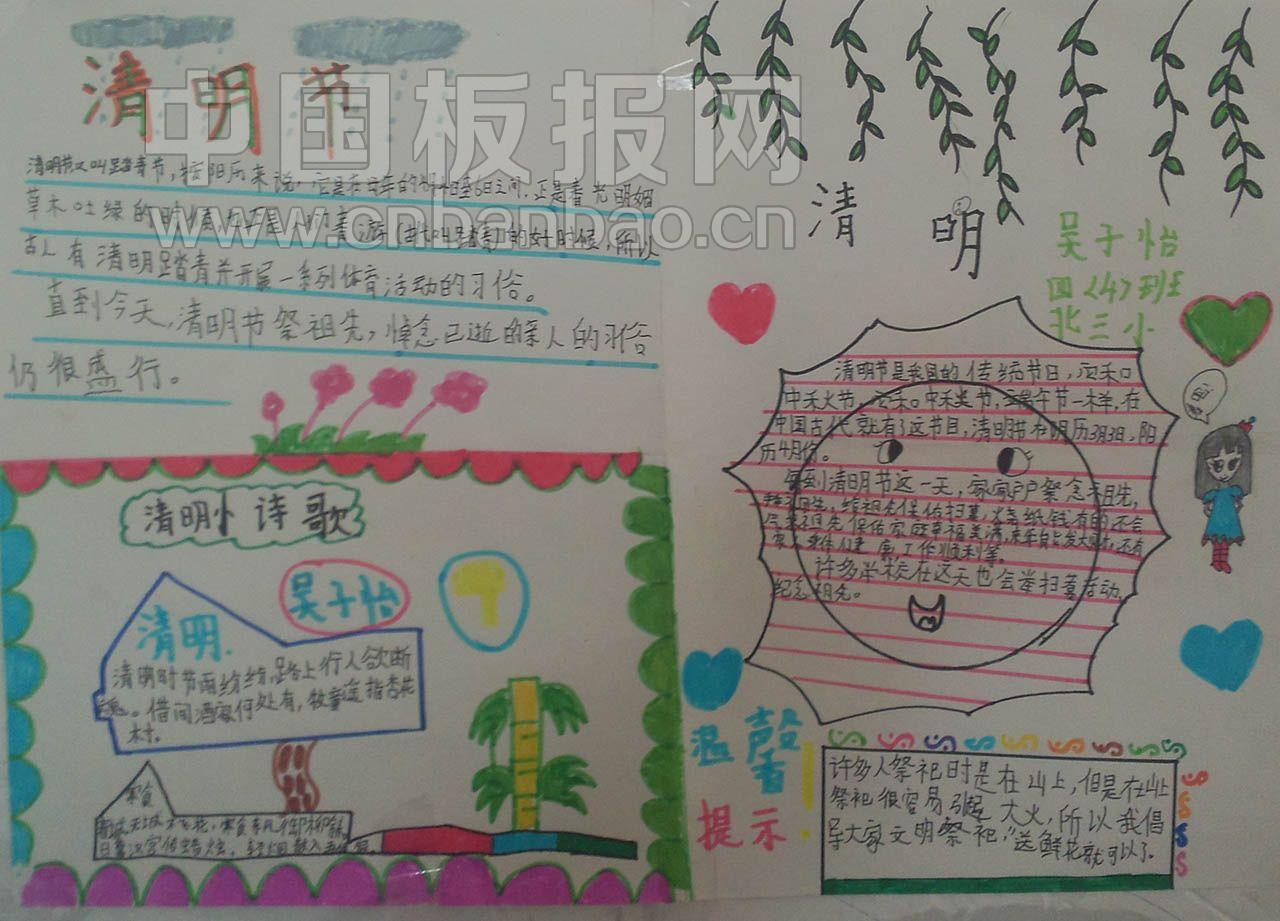 清明节
清明节又叫踏青节，按阳历来说，它是在每年的4月4日至6日之间，正是春光明媚
草木吐绿的时候，也正是人们春游（古代叫踏青）的好时候，所以
古人有清明踏青并开展一系列体育活动的习俗。
直到今天，清明节祭祖先，悼念已逝的亲人的习俗
仍很盛行。
中国板报网
www.cnbanbao.cn
清明小诗歌
吴子怡
清明.
清明时节雨纷纷，路上行人欲断
魂。借问酒家何处有，牧童遥指杏花
村.
寒食
春城无处不飞花，寒食东风御柳斜
日暮汉宫传蜡烛，轻烟散入五侯家
清 明
吴子怡
四〈4〉班
北三小
清明节是我国的传统节日，
中国古代就有了这节日，清明节在阴历3月3日，阳
历4月份。
每到清明节这一天，家家户户祭念祖先，
给祖先保佑扫墓，烧纸钱有的还会
保佑家庭幸福美满，来年自己发大财，还有
家人身体健康，工作顺利等。
许多学校在这天也会举扫墓活动，
纪念祖先。
温馨
提示
许多人祭祀时是在山上，但是在山上
祭祀很容易引起大火，所以我倡
导大家文明祭祀，“送鲜花就可以了。